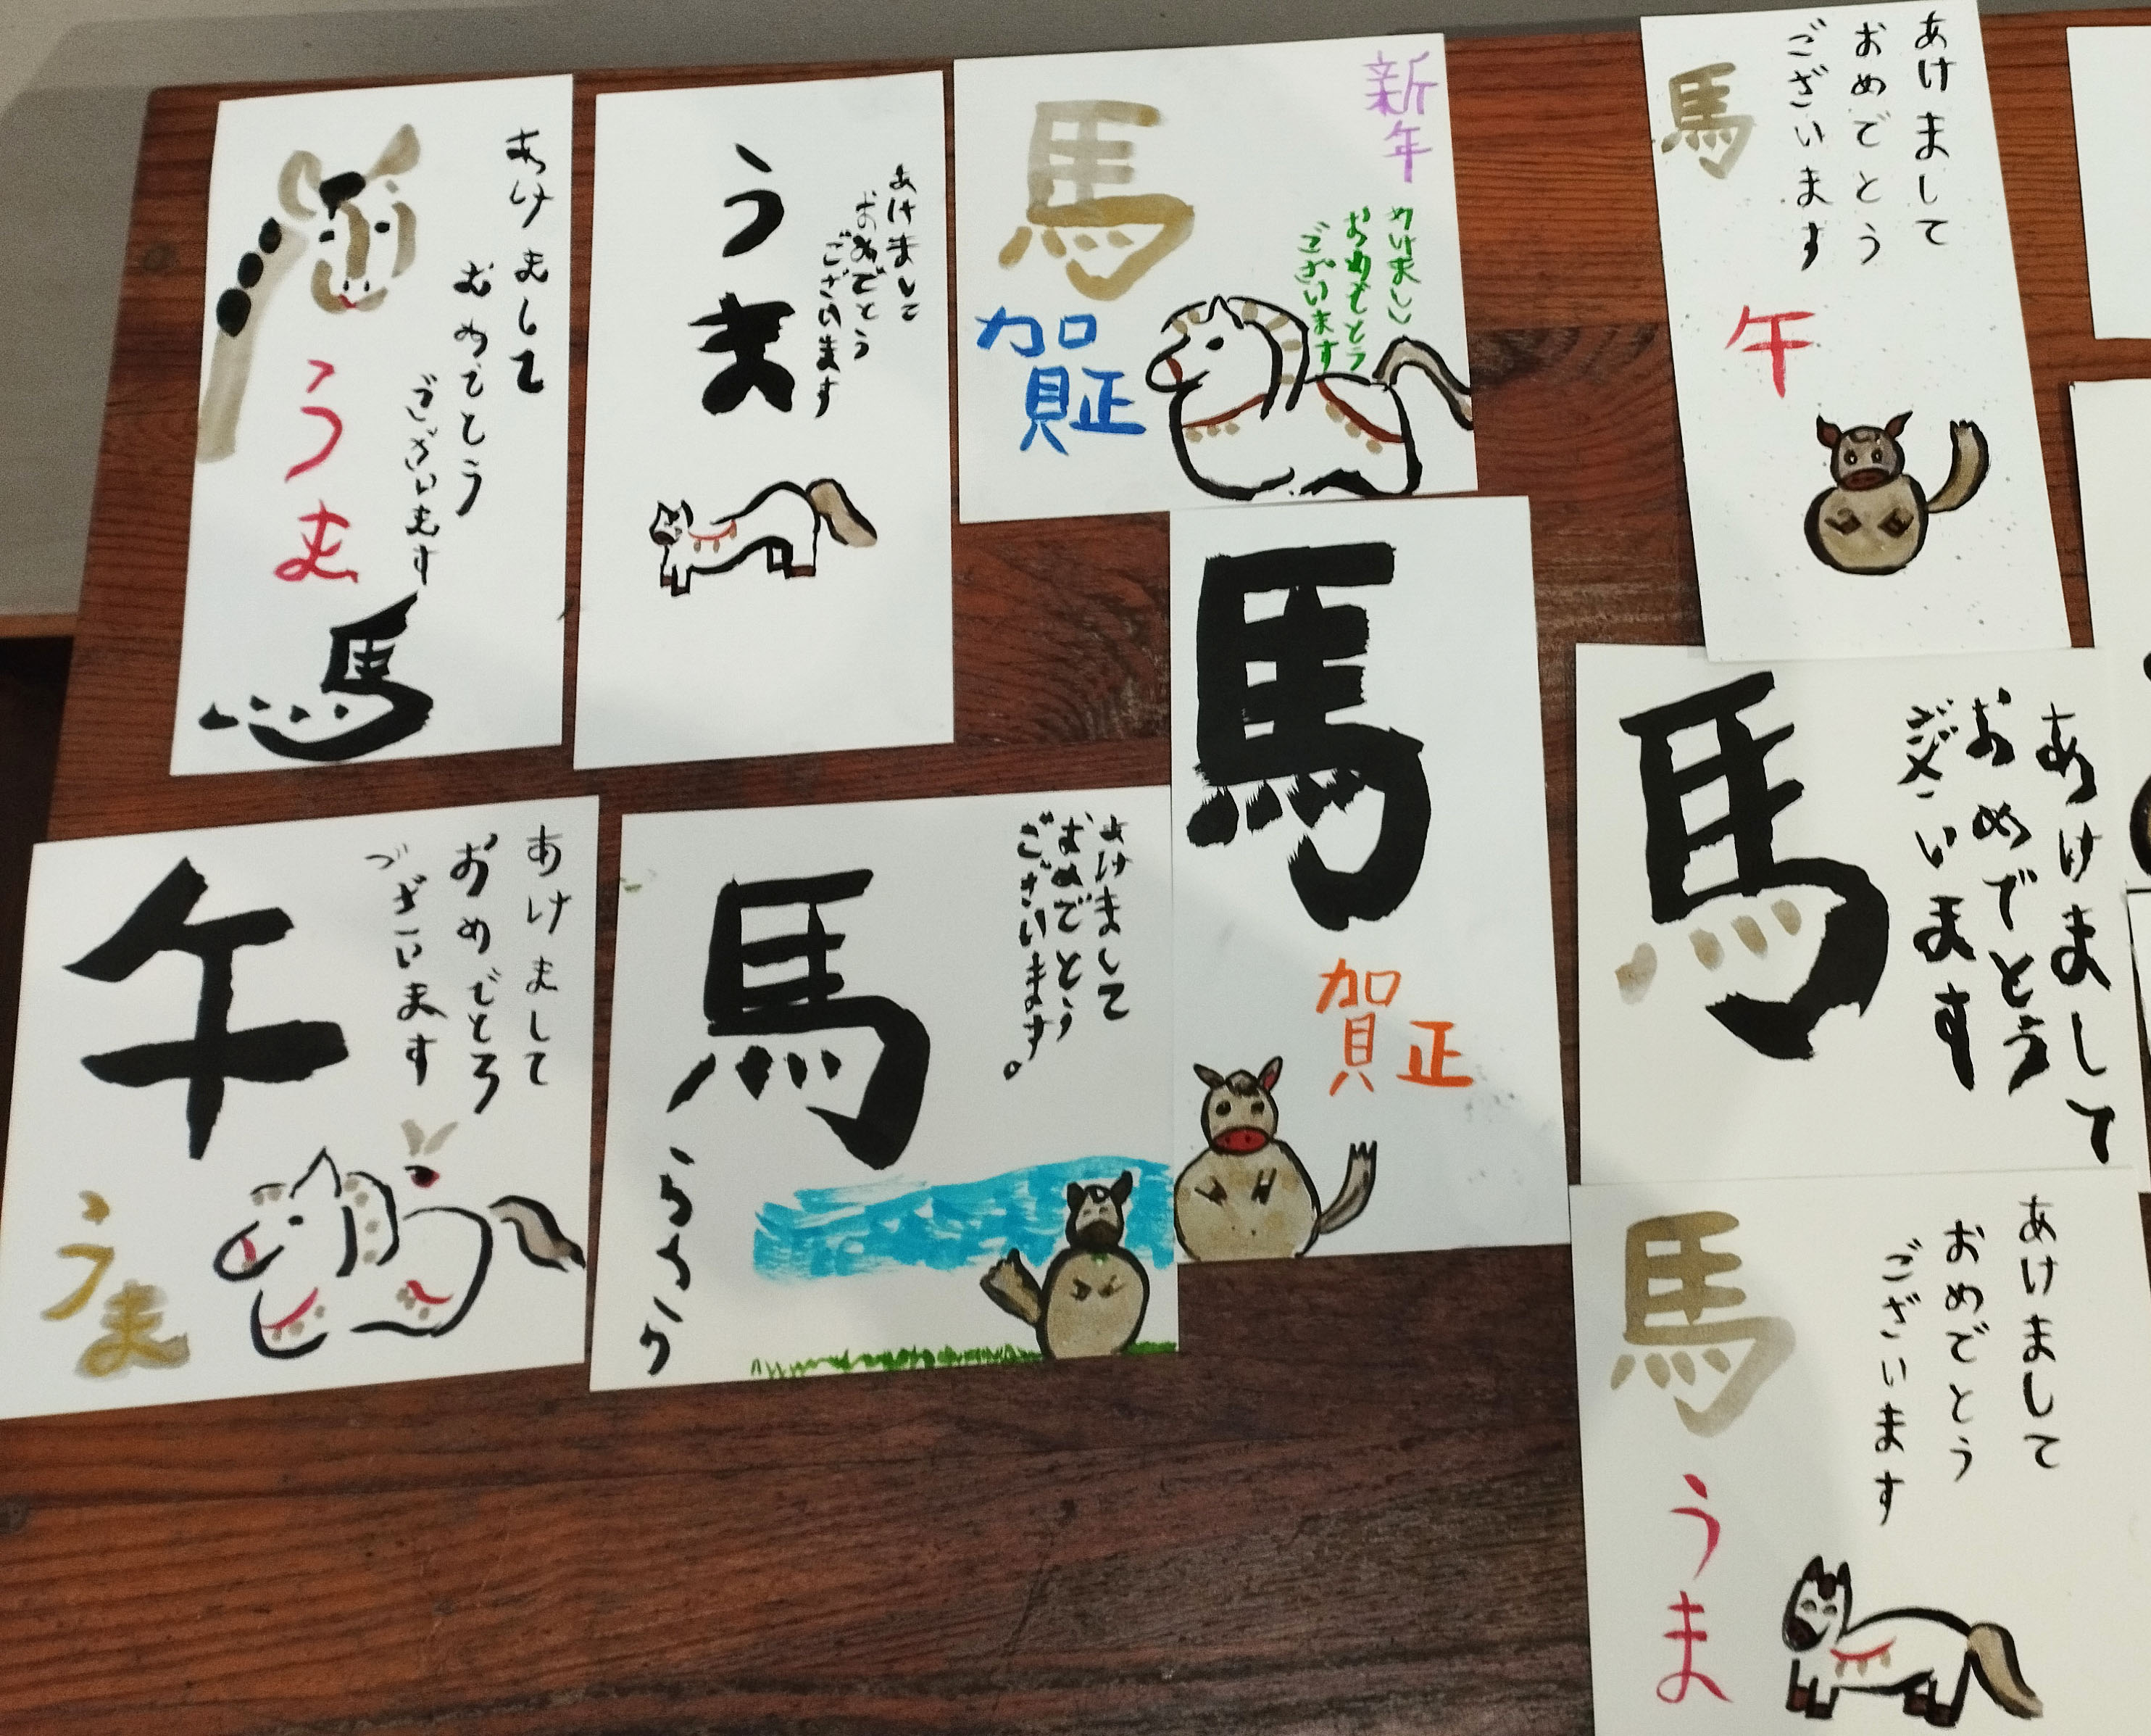 あけまして
おめでとう
ございます
うま
馬
あけまして
おめでとう
ございます
うま
新年
あけまして
おめでとう
ございます
馬
賀正
あけまして
おめでとう
ございます
馬
午
あけまして
おめでとう
ございます
午
うま
あけまして
おめでとう
ございます。
馬
馬
賀正
あけまして
おめでとう
ございます
馬
あけまして
おめでとう
ございます
馬
うま